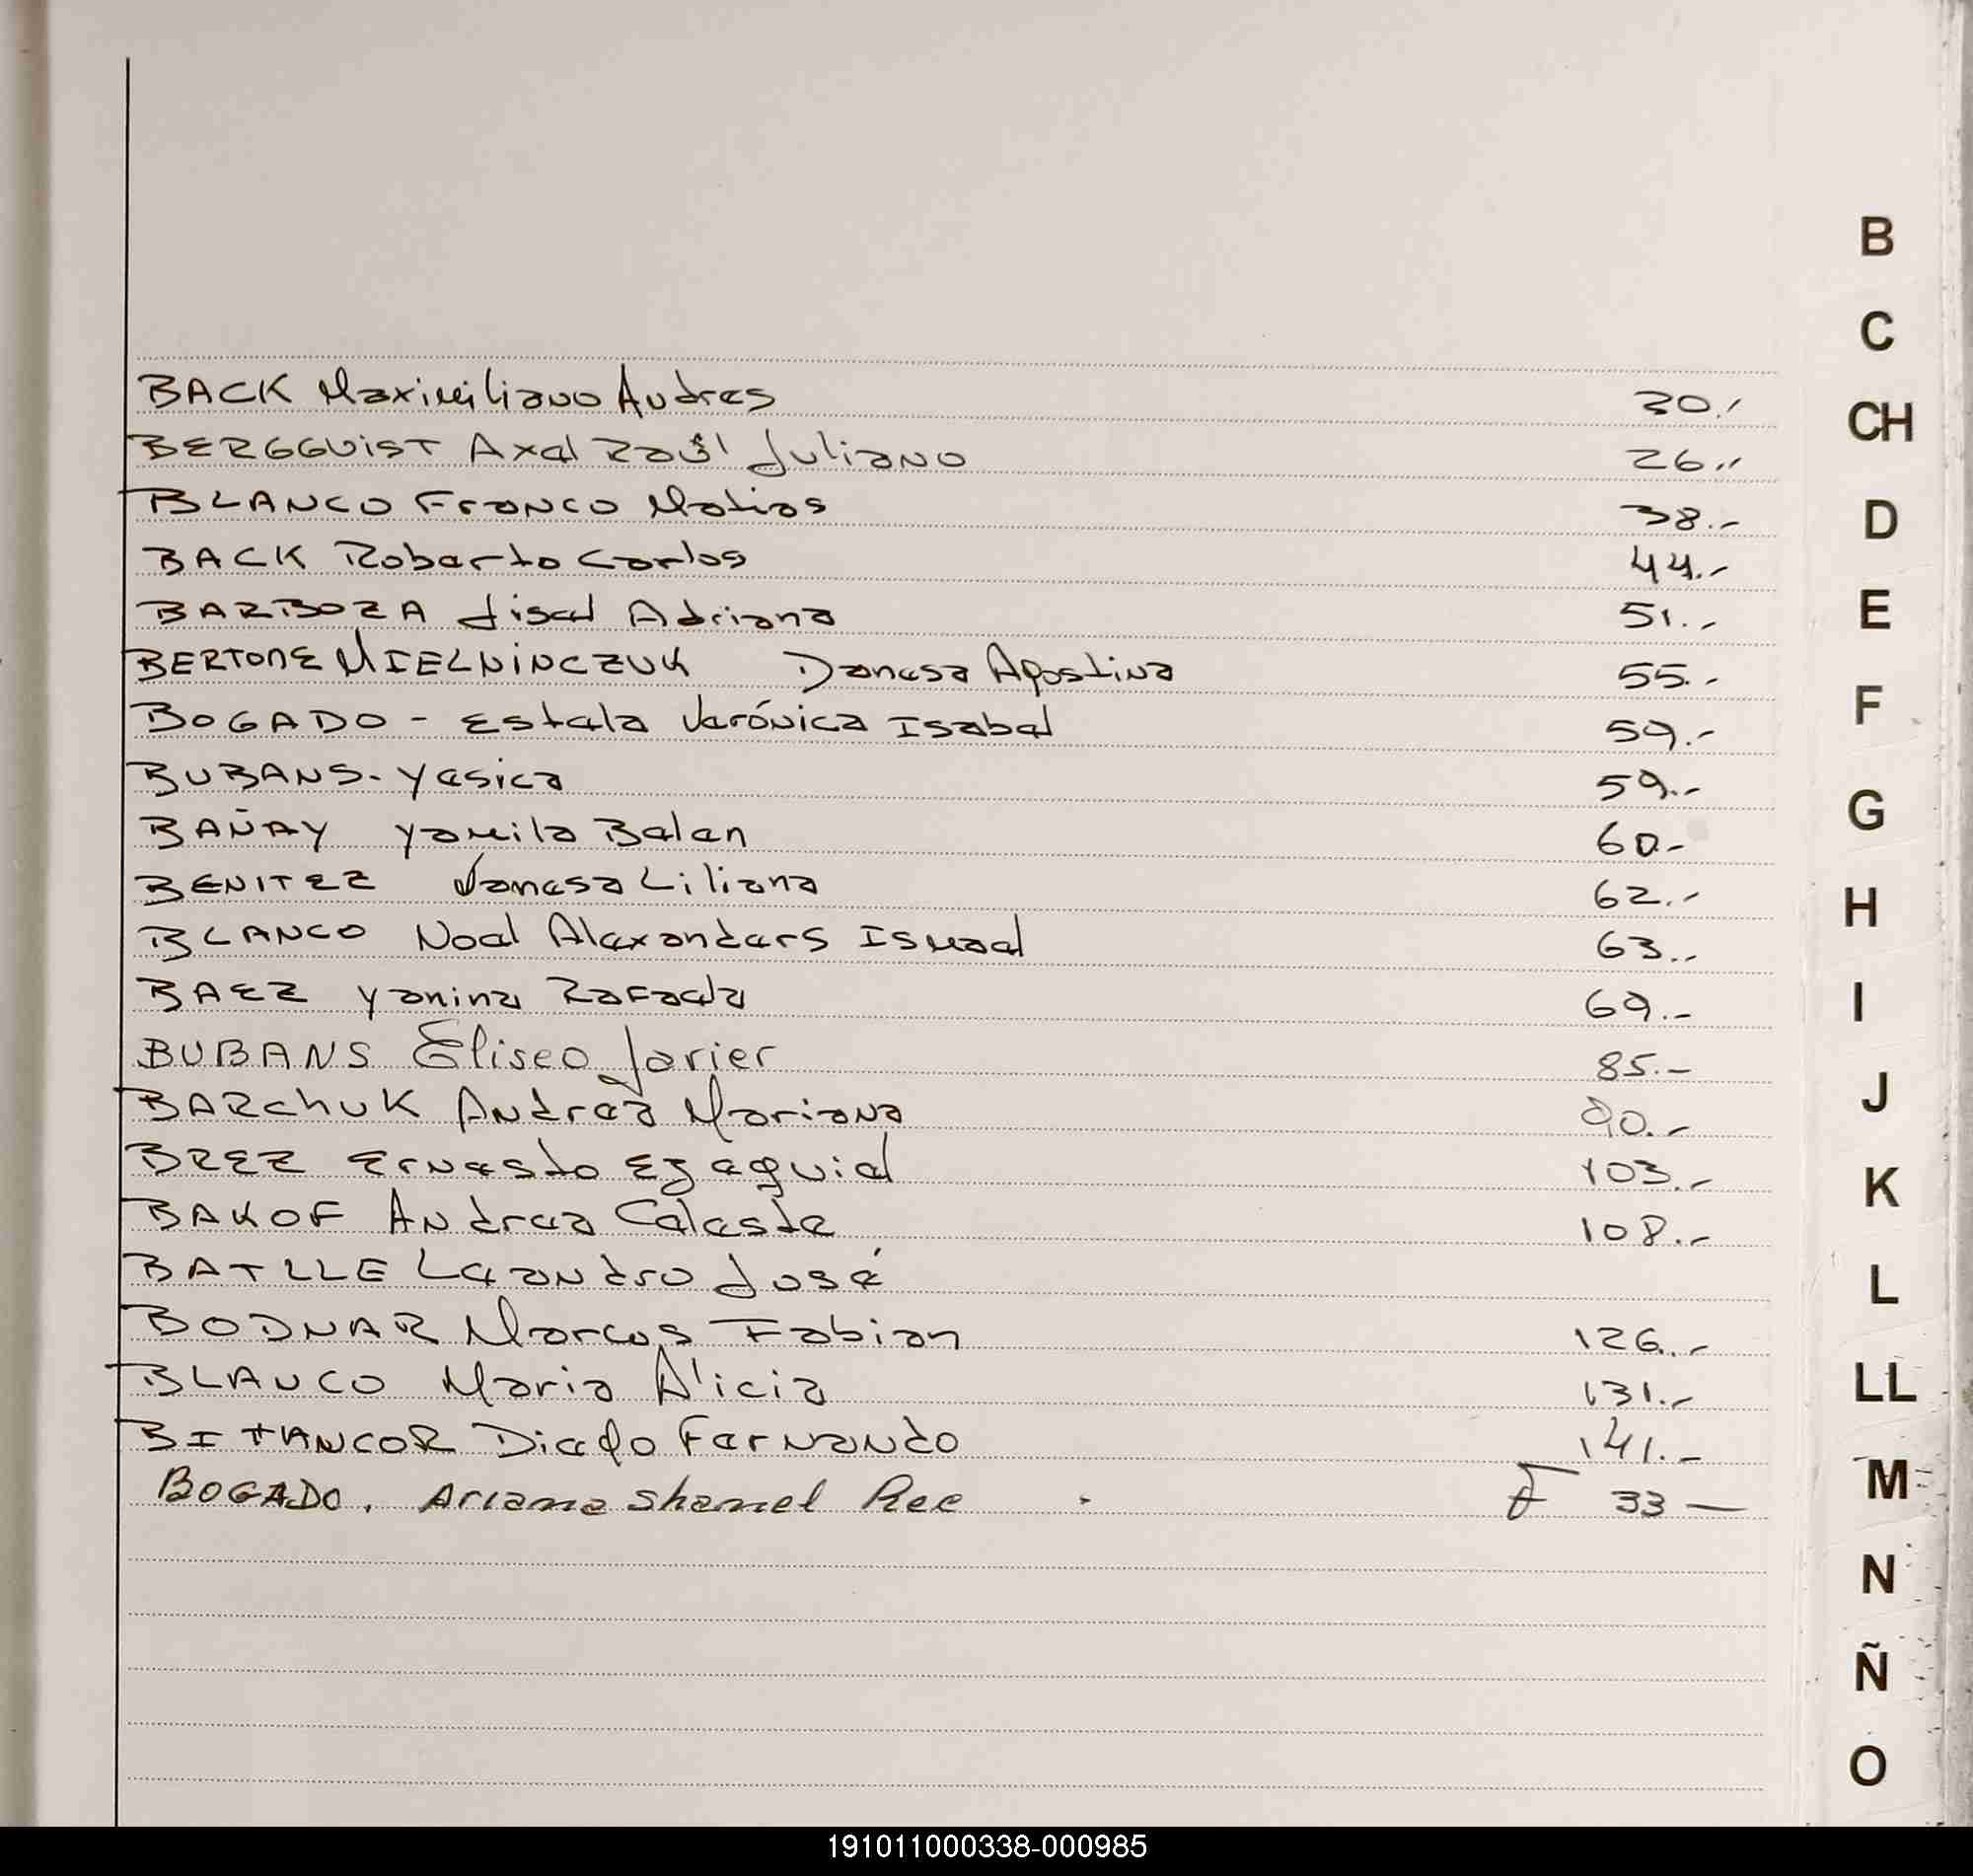 BACK Maximiliano Andres 30.-
BERGGUIST Axel Raúl Juliano 26.-
BLANCO Franco Matias 38.-
BACK Roberto Carlos 44.-
BARBOZA Lisel Adriana 51.-
BERTONE MIELNINCZUK Danesa Agostina 55.-
BOGADO - Estela Verónica Isabel 59.-
BUBANS - Yesica 59.-
BAÑAY Yamila Belen 60.-
BENITEZ Vanesa Liliana 62.-
BLANCO Noel Alexanders Ismael 63.-
BAEZ Yanina Rafaela 69.-
BUBANS Eliseo Javier 85.-
BARCHUK Andrea Mariana 90.-
BREZ Ernesto Ezequiel 103.-
BAKOF Andrea Celeste 108.-
BATLLE Leandro José
BODNAR Marcos Fabian 126.-
BLANCO Maria Alicia 131.-
BITTANCOR Diego Fernando 141.-
BOGADO. Ariana Shamel Ree 33 —
B
C
CH
D
E
F
G
H
I
J
K
L
LL
M
N
Ñ
O
191011000338-000985